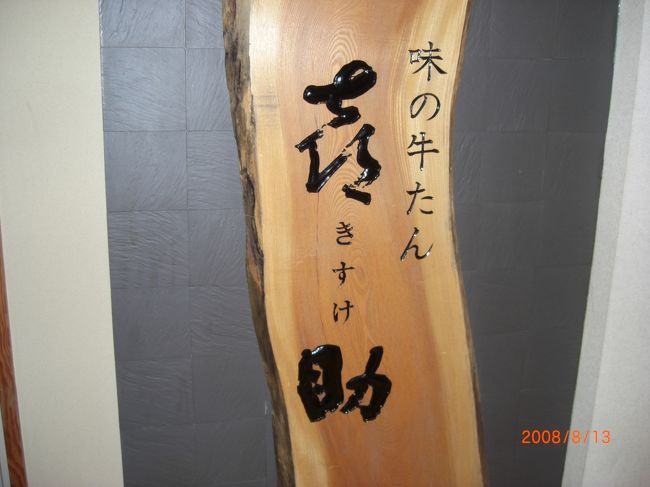 味の牛たん
喜助
きすけ
2008/8/13